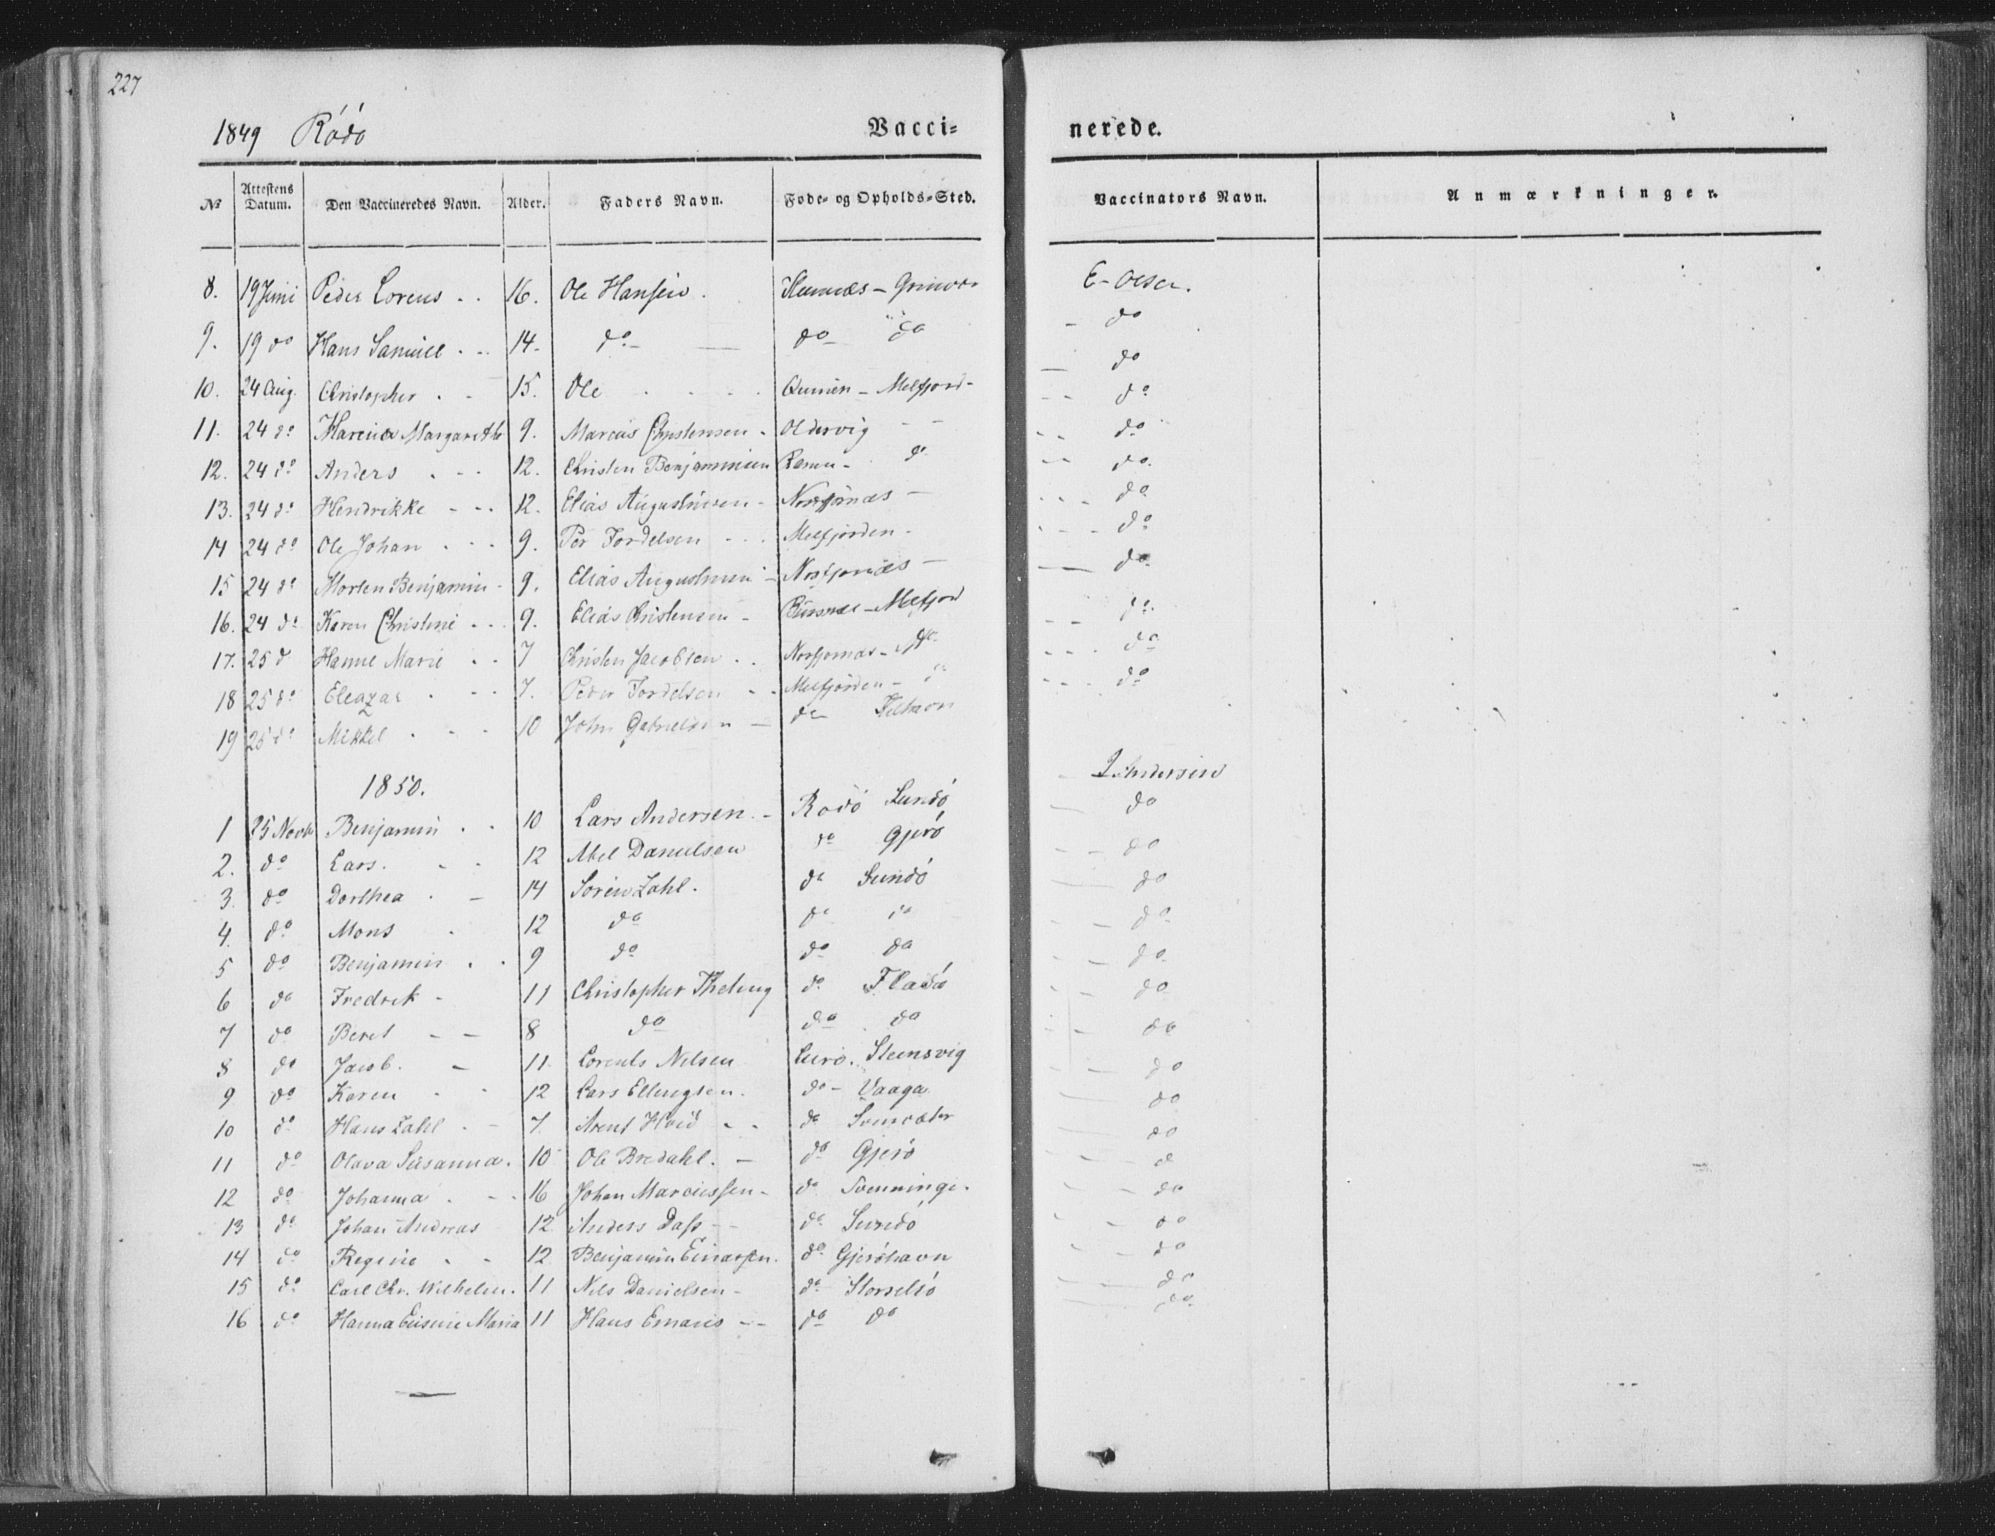 227
1849 Rödö Vacci= nerede.
№ Attestens Datum. Den Vaccineredes Navn. Alder. Faders Navn. Føde- og Opholds-Sted. Vaccinators Navn. Anmærkninger.
8. 19 Juni Peder Lorens 16. Ole Hansen. E. Olsen.
9. 19 do Hans Samuel 14. do do do do
10. 24 Aug. Christopher 15. Ole Melfjord do
11. 24 do Margarethe 9. Marcus Christensen Oldervig do
12. 24 do Anders 12. Christen Benjaminsen do do
13. 24 do Hendrikke 12. Elias Augustinsen do
14 24 do Ole Johan 9. Per Tordelsen Melfjorden do
15 24 do Morten Benjamin 9. Elias Augustinsen do
16. 24 do Karen Christine 9. Elias Christensen Melfjord do
17. 25 d Hanne Marie 7 Christen Jacobsen do do
18 25 do Eleazar 7. Peder Tordelsen Melfjorden do
19 25 do Mikkel 10 John Gabrielsen do do
1850.
1 25 Novb Benjamin 10 Lars Andersen Rödö Sundö Andersen
2. do Lars. 12 Abel Danielsen do Gjerö do
3. do Dorthea 14 Sören Zahl. do Sundö do
4. do Mons 12 do do do do
5 do Benjamin 9 do do do do
6 do Fredrik 11 Christopher do do
7 do Beret 8 do do do do
8 do Jacob. 11 Lorents Nilsen Lurö. Stensvig do
9 do Karen 12 Lars Ellingsen. do Vaaga do
10 do Hans Zahl 7. Arent Hvid do do
11 do Olava Susanna. 10 Ole Bredahl. do Gjerö do
12 do Johanna 16 Johan Marcussen do do
13 do Johan Andreas 12 Anders Dass do Sundö do
14 do Regine 12 Benjamin Einarsen. do Gjeröhavn do
15 do Carl Chr. Wilhelm. 11 Nils Danielsen do Storselsö do
16 do Hanna Maria 11 Hans do do do